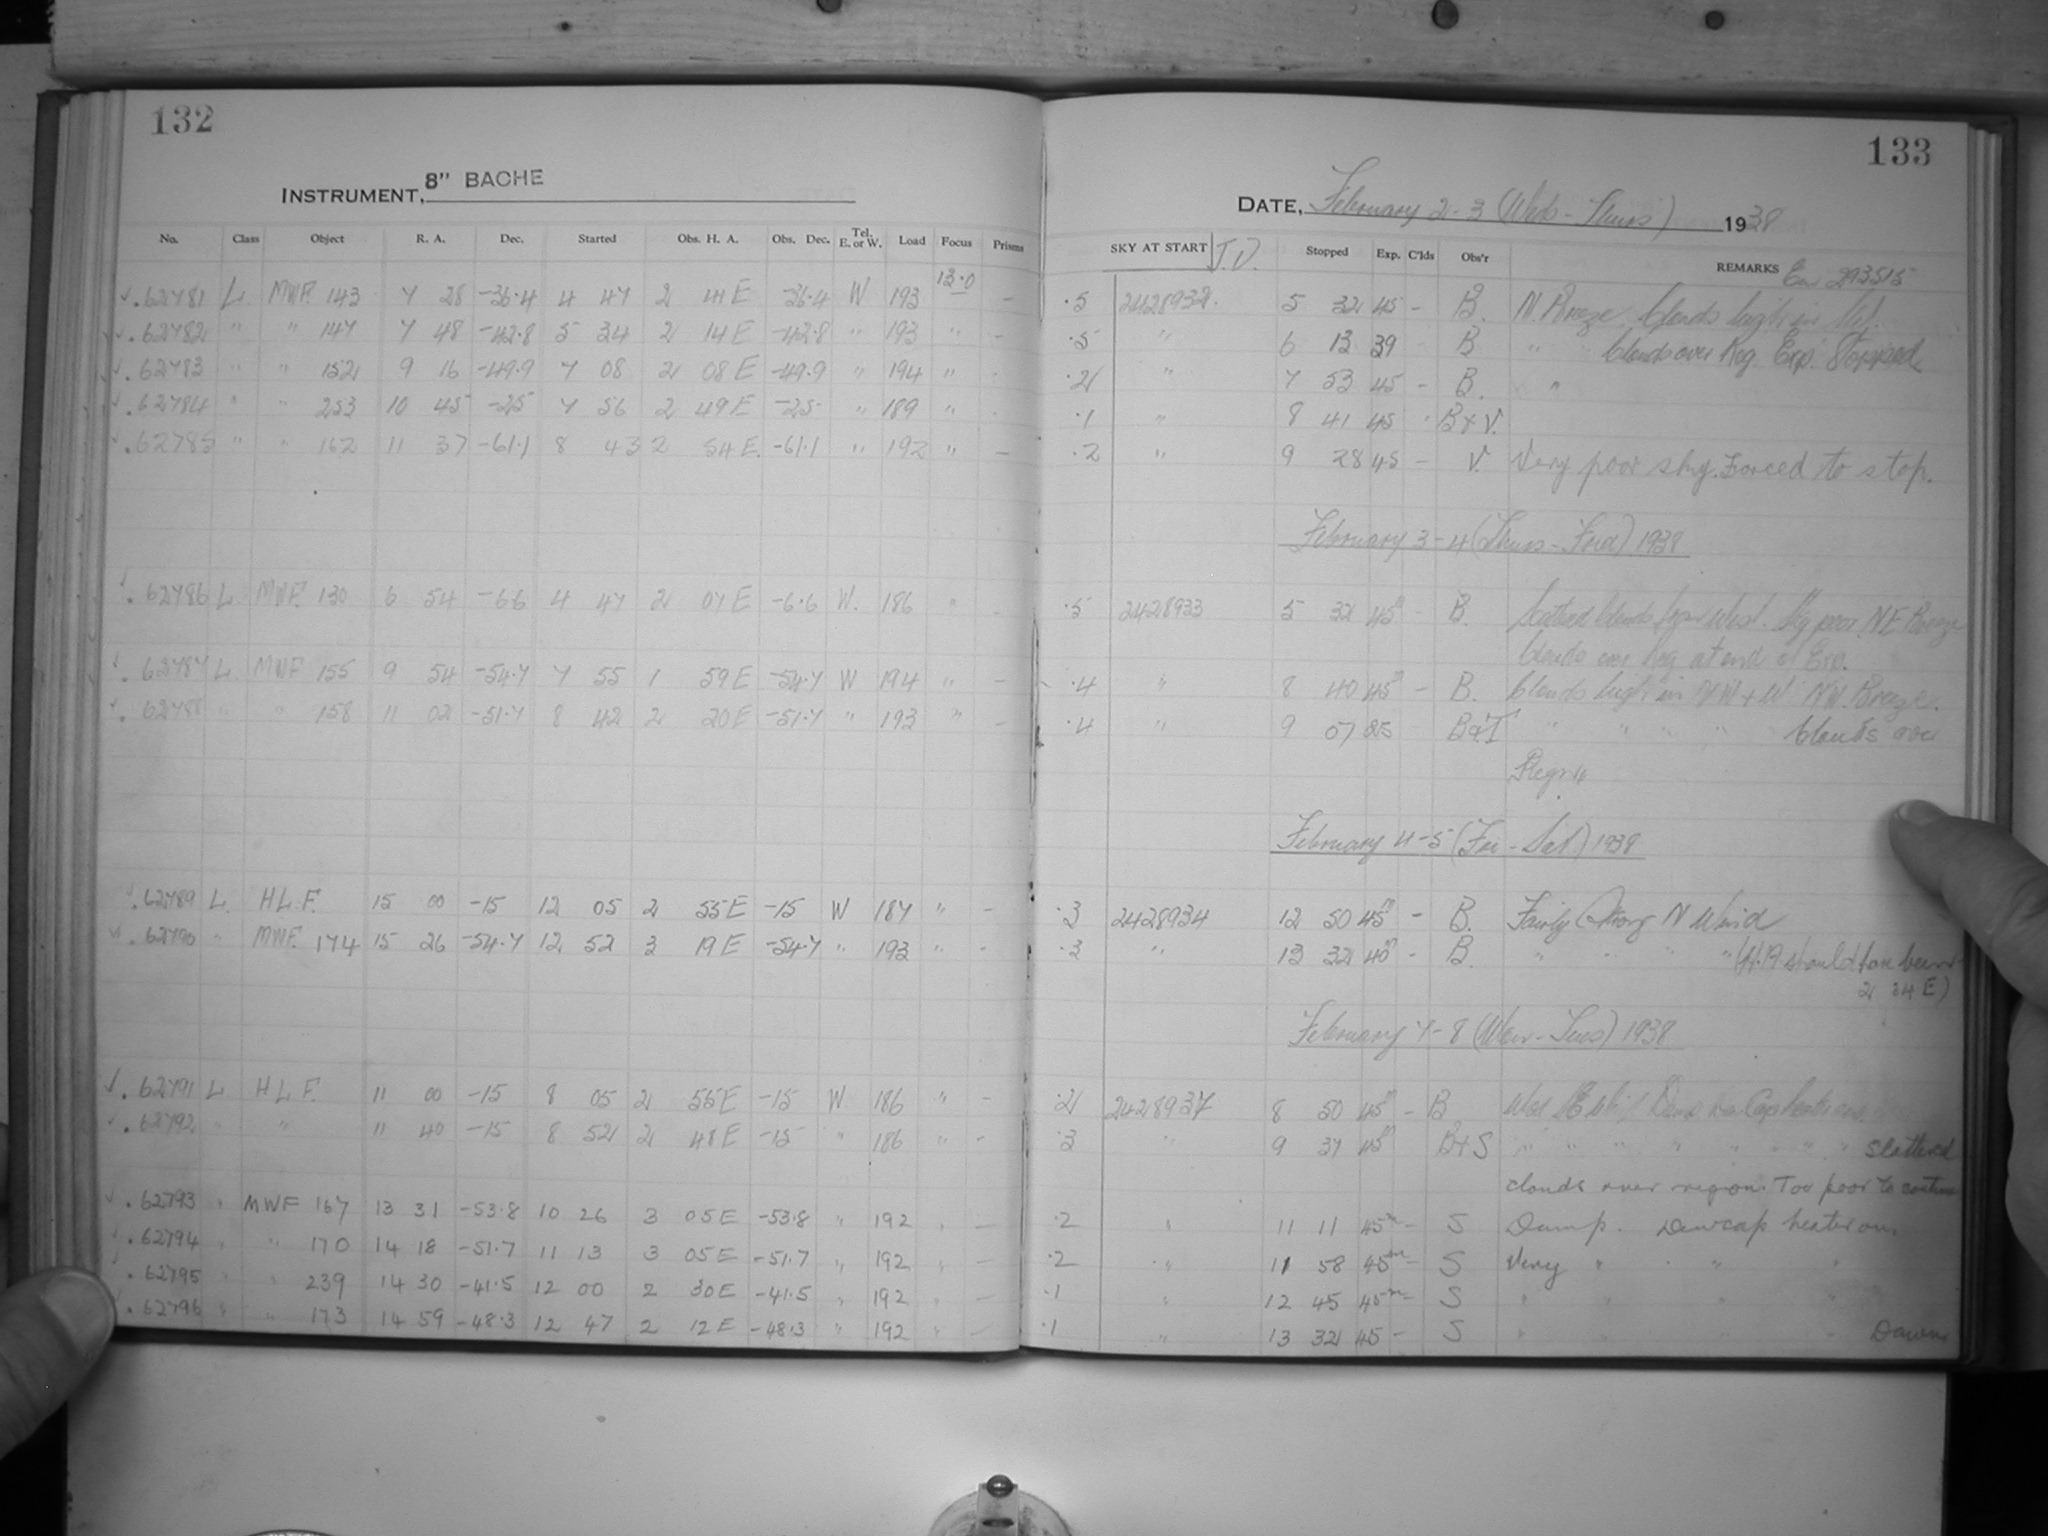 132
INSTRUMENT, 8" BACHE
No. Class Object R. A. Dec. Started Obs. H. A. Obs. Dec. Tel. E. or W. Load Focus Prisms
✓ .62781 L MWF. 143 7 28 -36.4 4 47 2 41 E -36.4 W 193 13.0 –
✓ .62782 " " 147 7 48 -42.8 5 34 2 14 E -42.8 " 193 "
✓ .62783 " " 152 9 16 -49.9 7 08 2 08 E -49.9 " 194 "
✓ .62784 " " 253 10 45 -25 7 56 2 49 E -25 " 189 "
✓ .62785 " " 162 11 37 -61.1 8 43 2 54 E. -61.1 " 192 " –
✓ . 62786 L MWF. 130 6 54 -6.6 4 47 2 07 E -6.6 W. 186 "
. 62787 L MWF 155 9 54 -54.7 7 55 1 59 E -54.7 W 194 " –
. 62788 " " 158 11 02 -51.7 8 42 2 20 E -51.7 " 193 " –
.62789 L. H L F. 15 00 -15 12 05 2 55 E -15 W 187 " –
.62790 " MWF. 174 15 26 -54.7 12 52 3 19 E -54.7 " 193 " –
✓ . 62791 L H L F. 11 00 -15 8 05 2 55 E -15 W 186 " –
✓ . 62792 " " 11 40 -15 8 52 2 48 E -15 " 186 " –
✓ .62793 " MWF 167 13 31 -53.8 10 26 3 05 E -53.8 " 192 " –
✓ .62794 " " 170 14 18 -51.7 11 13 3 05 E -51.7 " 192 " –
. 62795 " " 239 14 30 -41.5 12 00 2 30 E -41.5 " 192 " –
. 62796 " " 173 14 59 -48.3 12 47 2 12 E -48.3 " 192 " –
133
DATE, February 2-3 (Wed-Thurs) 1938
SKY AT START J.D. Stopped Exp. C'lds Obs'r REMARKS
.5 2428932. 5 32 45 – B. N. Breeze. Clouds high in
.5 " 6 13 39 B " Clouds over Reg. Exp. Stopped
.2 " 7 53 45 – B. " "
.1 " 8 41 45 B & V.
.2 " 9 28 45 – V. Very poor sky. Forced to stop.
February 3-4 (Thurs-Frid) 1938
.5 2428933 5 32 45 – B. Clouds West. Sky poor. NE Breeze
Clouds over Reg. at end of Exp.
.4 " 8 40 45 – B. Clouds high in NW + W. NW. Breeze.
.4 " 9 07 25 B & T " " " " Clouds over
Region
February 4-5 (Fri-Sat) 1938
.3 2428934 12 50 45 – B. Fairly Strong N Wind
.3 " 13 32 40 – B. " " " " (H.A should have been
2 34 E)
February 7-8 (Mon-Tues) 1938
.2 2428937 8 50 45 – B
.3 " 9 37 45 B + S " " " " " Scattered
clouds over region. Too poor to continue
.2 " 11 11 45m – S Damp. Dewcap heater on.
.2 " 11 58 45m – S Very " " "
.1 " 12 45 45m – S " " "
.1 " 13 32 45 – S " " " Dawn